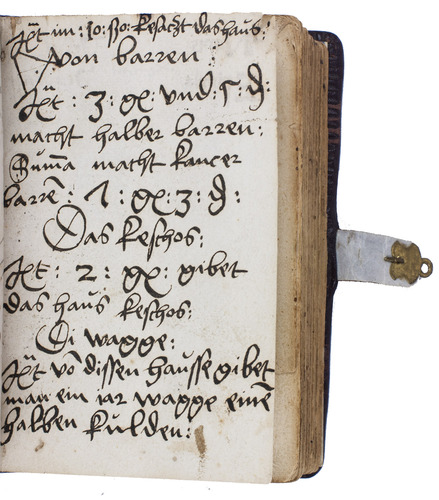 Jt̃ im: 10: ßo: kesatzt das haus:
Von barren:
Jt̃: 3: gx: und: 5: d:
macht halber barren:
Sum̃a macht kancer
barrẽ: 1: gx: 3: d:
Das keschos:
Jt̃: 2: gx: gibet
das haus keschos:
Di wagge:
Jt̃ võ dissen hausse gibet
man ein iar wagge einẽ
halben kulden: